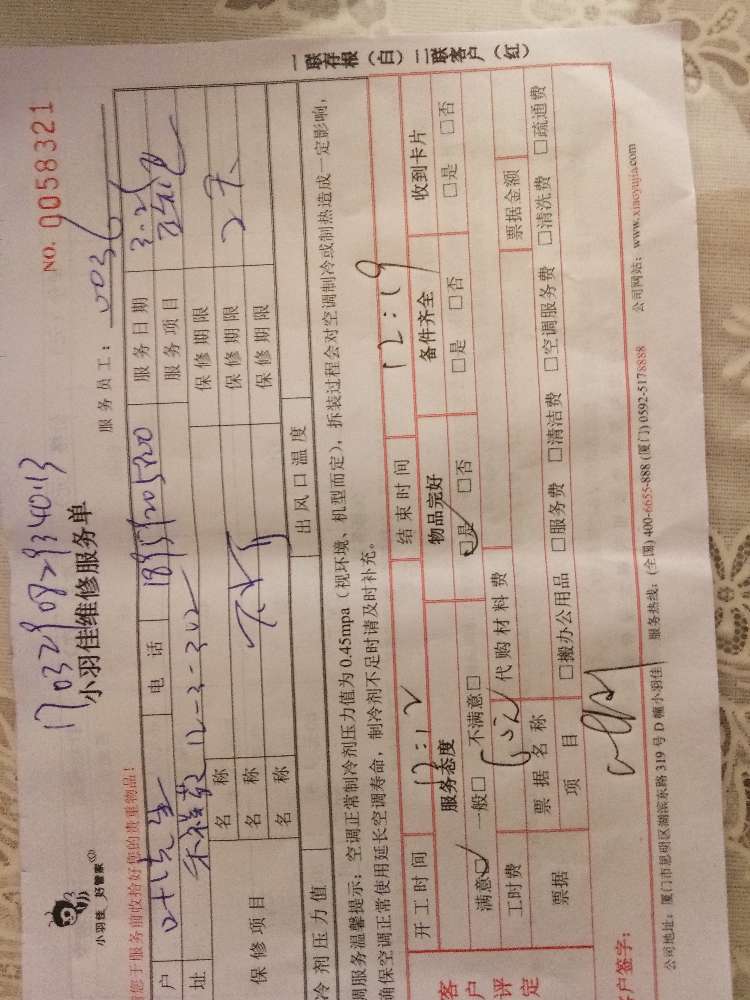 一联存根（白）二联客户（红）
小羽佳 好管家
NO. 0058321
小羽佳维修服务单
服务员工： 0036
您于服务前收拾好您的贵重物品！
户 叶先生 电 话 服务日期 3.26
址 12-3-302 服务项目
保修项目
名 称 保修期限
名 称 保修期限 2天
名 称 保修期限
冷剂压力值 出风口温度
调服务温馨提示：空调正常制冷剂压力值为 0.45mpa（视环境、机型而定），拆装过程会对空调制冷或制热造成一定影响，
确保空调正常使用延长空调寿命，制冷剂不足时请及时补充。
客户评定
开工时间 结束时间 12:19
服务态度 物品完好 备件齐全 收到卡片
满意□ 一般□ 不满意□ □是 □否 □是 □否 □是 □否
工时费 代购材料费
票据 票 据 名 称 票据金额
项 目 □搬办公用品 □服务费 □清洁费 □空调服务费 □清洗费 □疏通费
户签字：
公司地址：厦门市思明区湖滨东路 319 号 D 幢小羽佳 服务热线：(全国) 400-6655-888 (厦门) 0592-5178888 公司网站：www.xiaoyujia.com